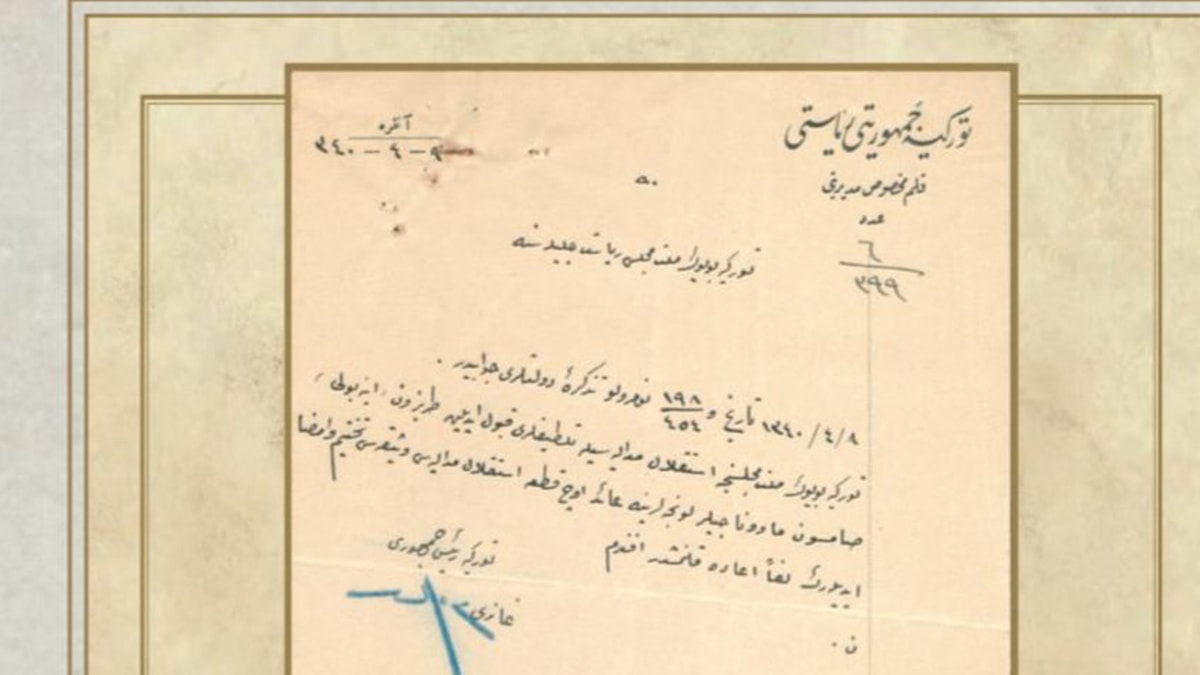 توركیه جمهوریتی ریاستی
قلم مخصوص مدیریتی
عدد
٦
٣٩٩
آنقره
٩ – ٤ – ٣٤٠
توركیه بویوك ملت مجلسی ریاست جلیله سنه
٨/٤/١٣٤٠ تاریخ و ١٩٨/٤٥٤ نومرولو تذكرۀ دولتلری جوابیدر .
توركیه بویوك ملت مجلسنجه استقلال مدالیه سیله تلطیفلری قبول ایدیلن طرابزون ، اینه بولی ،
صامسون ماوونا جیلر لونجه لرینه عائد اوچ قطعه استقلال مدالیه سی وثیقه سی تختیم وامضا
ایدیله رك لفاً اعاده قلنمشدر افندم
توركیه رئیس جمهوری
غازی م
ن .